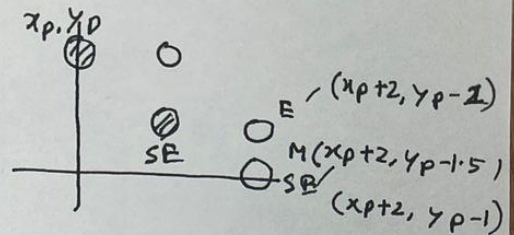 xp, yp
E (xp+2, yp-1)
SE M(xp+2, yp-1.5)
SE
(xp+2, yp-1)